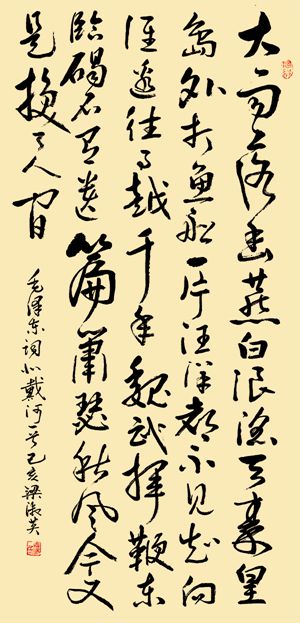 大雨落幽燕白浪滔天秦皇
岛外打鱼船一片汪洋都不见知向
谁边往事越千年魏武挥鞭东
临碣石有遗篇萧瑟秋风今又
是换了人间
毛泽东词北戴河一首己亥梁淑英